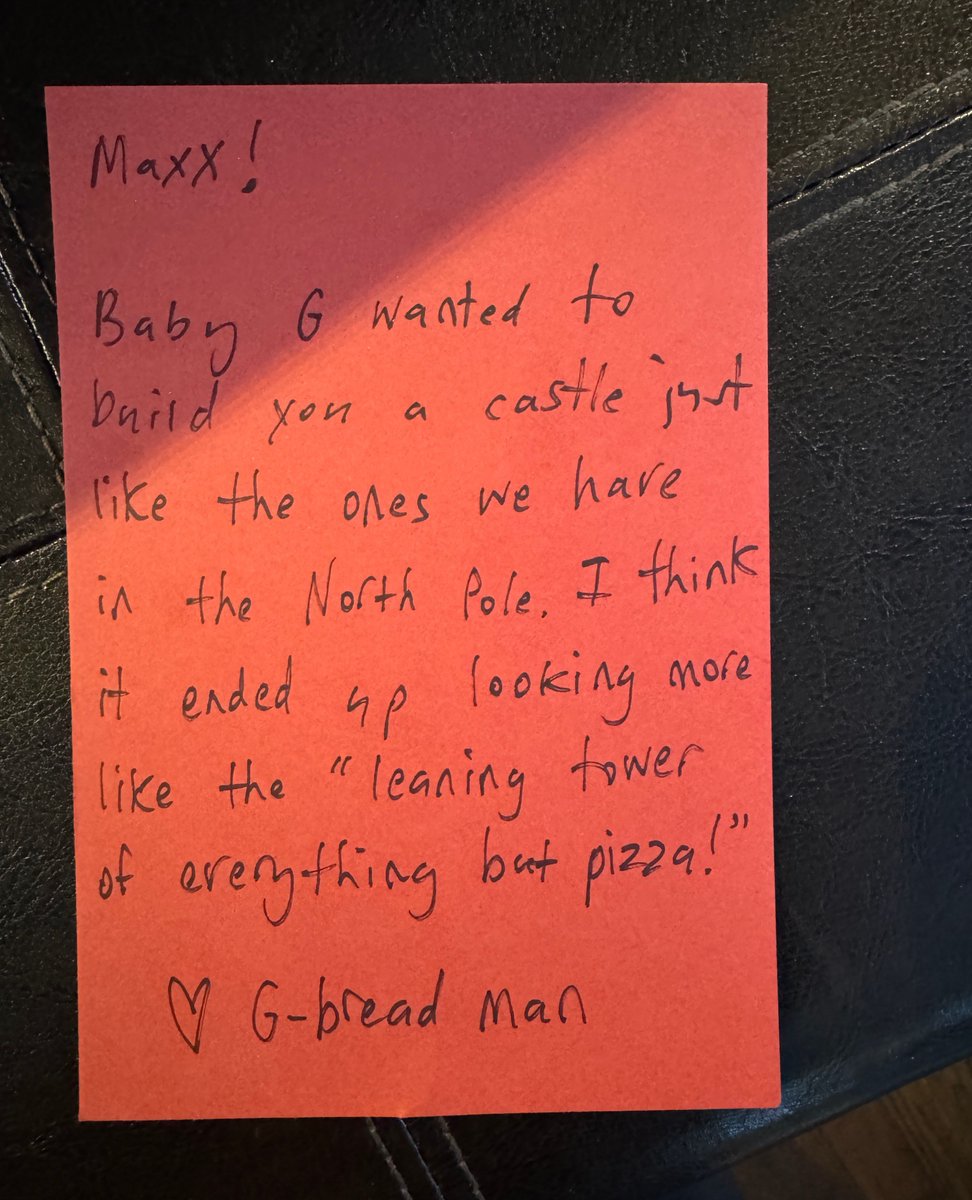 Maxx!
Baby G wanted to
build you a castle just
like the ones we have
in the North Pole. I think
it ended up looking more
like the "leaning tower
of everything but pizza!"
♡ G-bread Man